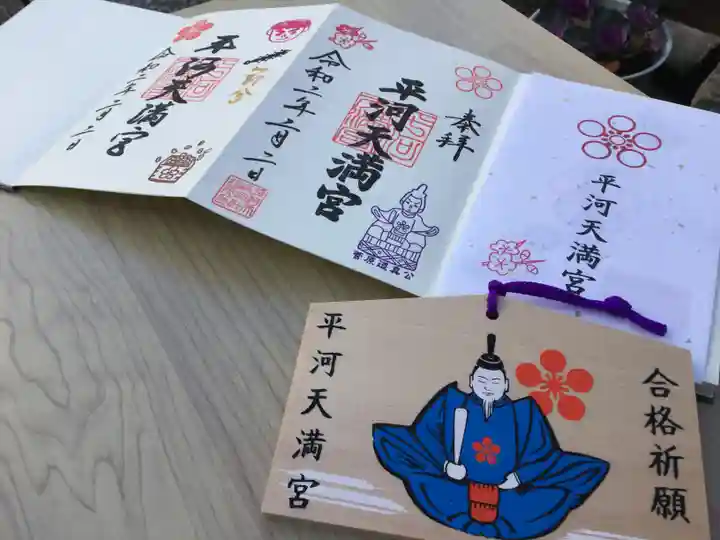 平河天満宮
令和二年二月二日
節分
奉拝
平河天満宮
令和二年二月二日
菅原道真公
平河天満宮
平河天満宮
合格祈願